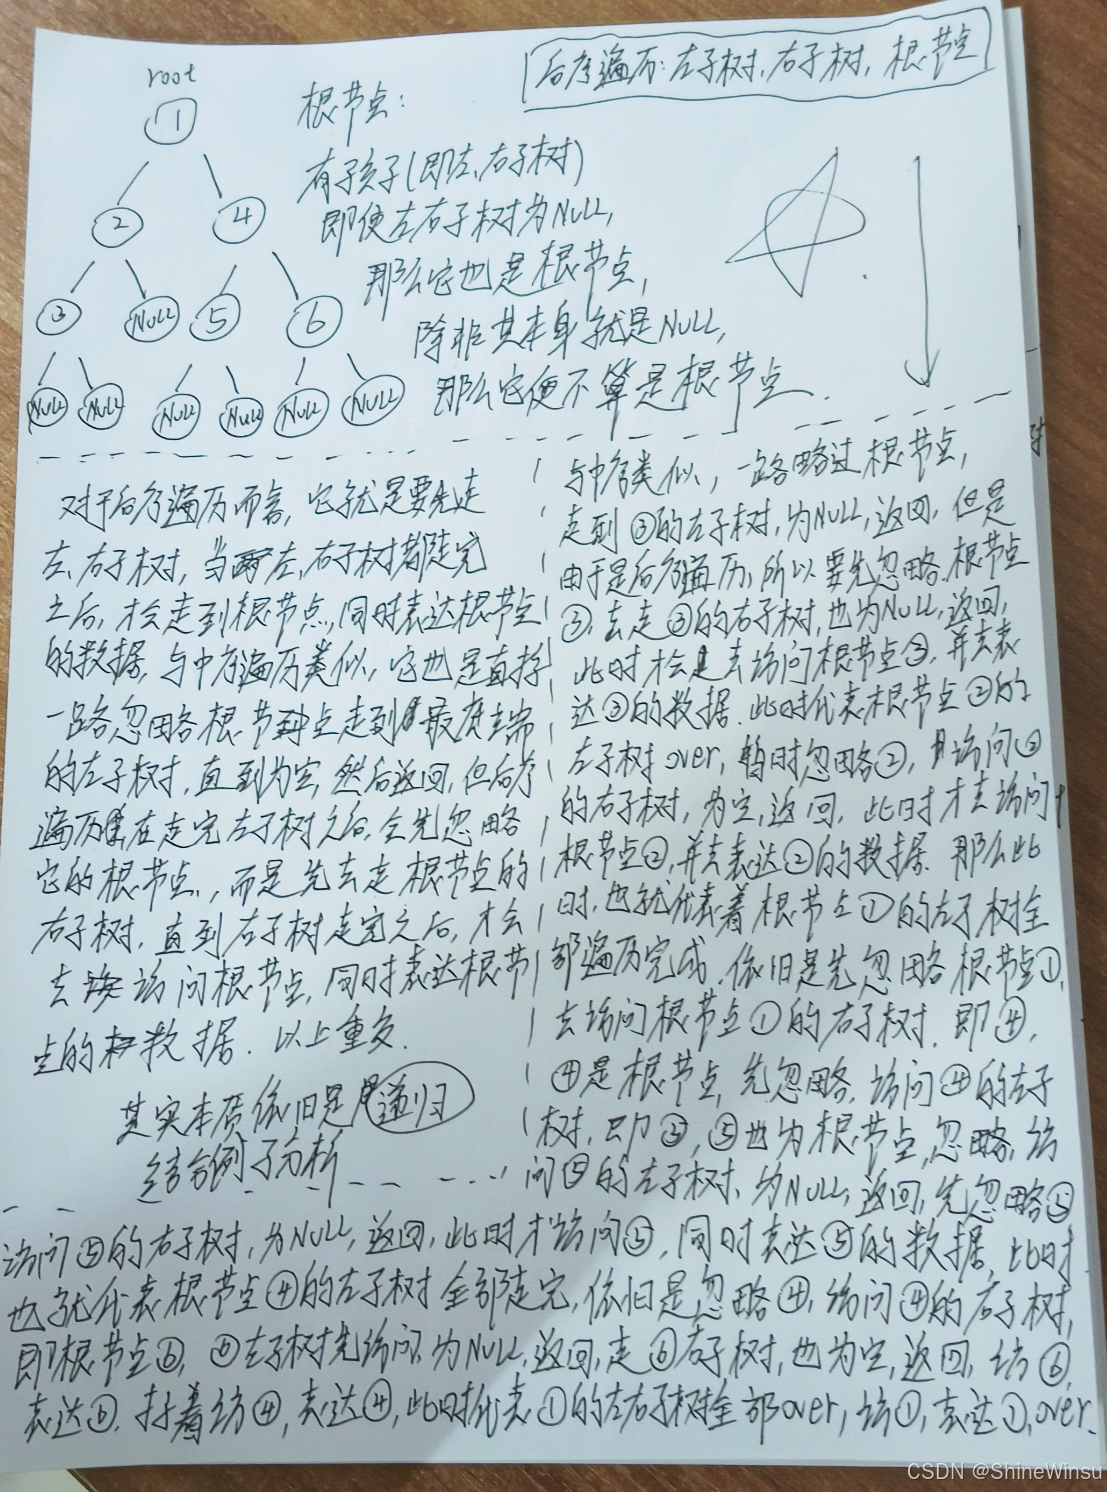 后序遍历:左子树,右子树,根节点
root
1
2
4
3
NULL
5
6
NULL
NULL
NULL
NULL
NULL
NULL
根节点:
有子孩子(即左,右子树)
即使左右子树为NULL,
那么它也是根节点,
除非其本身就是NULL,
那么它便不算是根节点.
对于后序遍历而言,它就是要先走
左,右子树,当左,右子树都走完
之后,才会走到根节点,同时表达根节点
的数据,与中序遍历类似,它也是直接
一路忽略根节点走到最底端
的左子树,直到为空,然后返回,但后序
遍历在走完左子树之后,会先忽略
它的根节点,而是先去走根节点的
右子树,直到右子树走完之后,才会
去访问根节点,同时表达根节
点的数据.以上重复.
其实本质依旧是递归
结合例子分析
与中序类似,一路略过根节点,
走到③的左子树,为NULL,返回,但是
由于是后序遍历,所以要先忽略根节点
③,去走③的右子树,也为NULL,返回,
此时才会去访问根节点③,并去表
达③的数据.此时代表根节点②的
左子树over,暂时忽略②,访问②
的右子树,为空,返回,此时才去访问
根节点②,并去表达②的数据.那么此
时,也就代表着根节点①的左子树全
部遍历完成,依旧是先忽略根节点①,
去访问根节点①的右子树.即④,
④是根节点,先忽略,访问④的左子
树,即⑤,⑤也为根节点,忽略,访
问⑤的左子树,为NULL,返回,先忽略⑤
访问⑤的右子树,为NULL,返回,此时才访问⑤,同时表达⑤的数据,此时
也就代表根节点④的左子树全部走完,依旧是忽略④,访问④的右子树,
即根节点⑥,⑥左子树先访问,为NULL,返回,走⑥右子树,也为空,返回,访⑥,
表达⑥.接着访④,表达④,此时代表①的左右子树全部over,访①,表达①,over.
CSDN @ShineWinsu